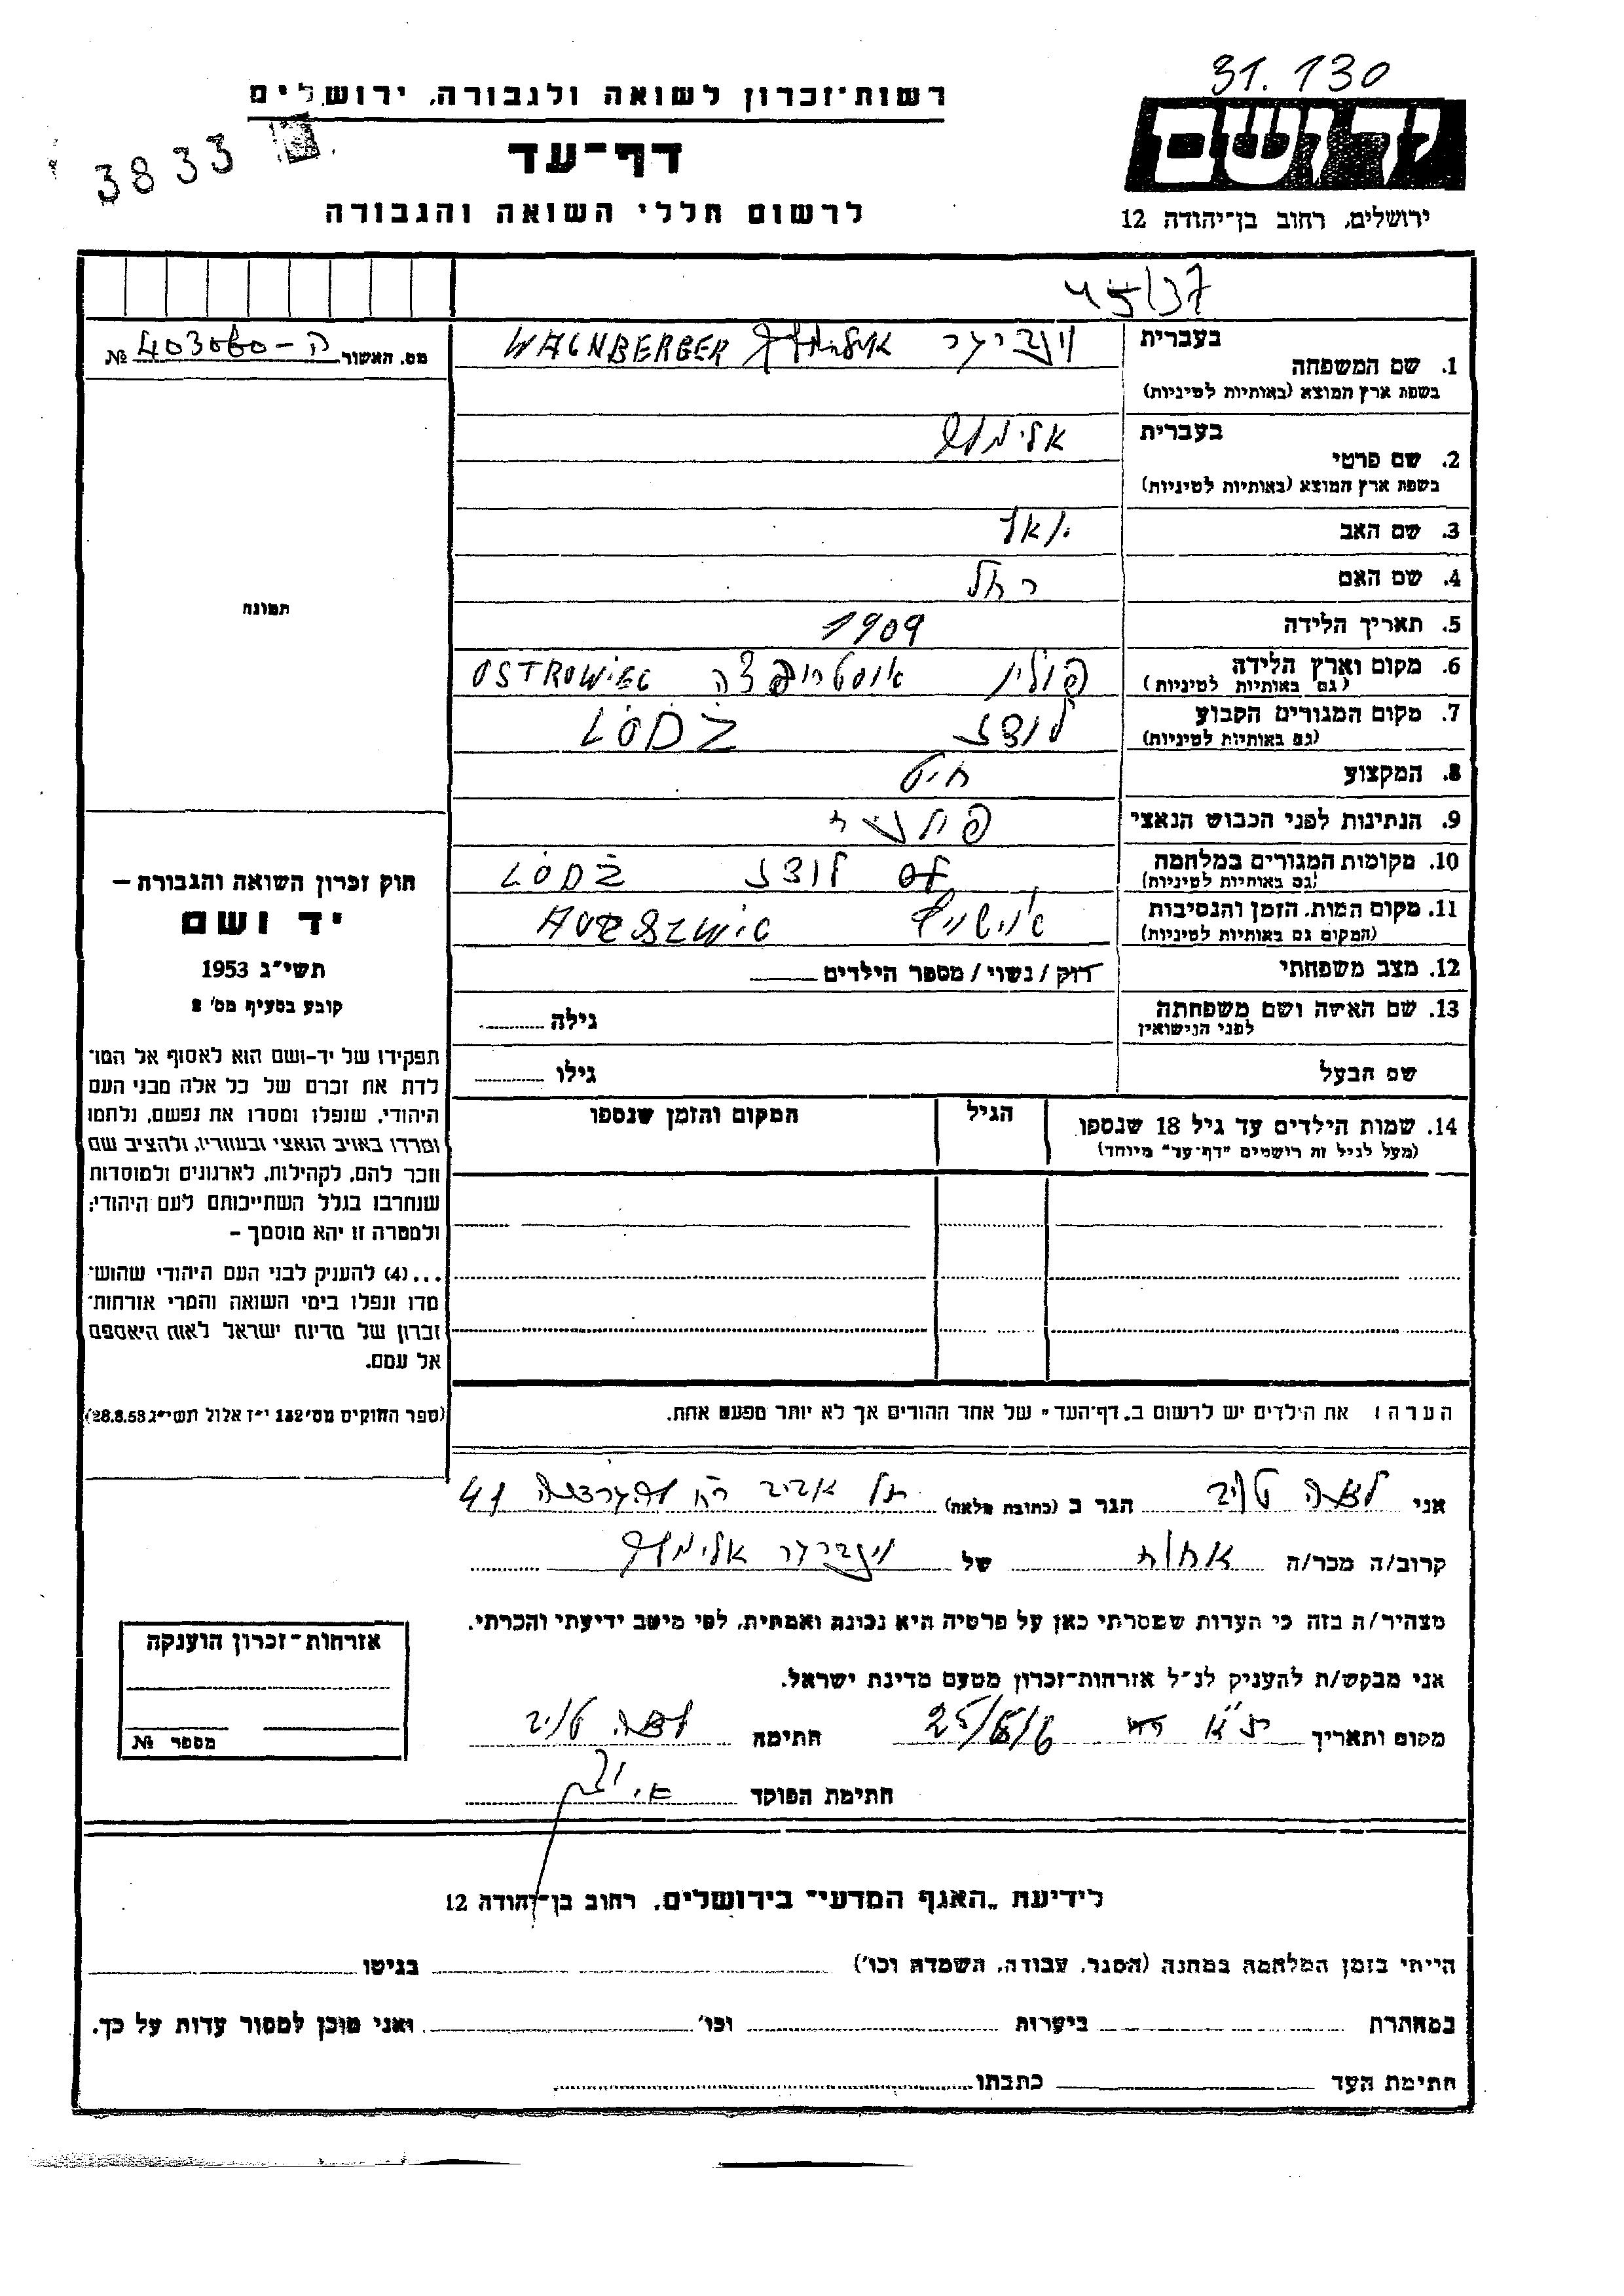 31.130
רשות־זכרון לשואה ולגבורה, ירושלים
3833
דף־עד
ידושם
לרשום חללי השואה והגבורה
ירושלים, רחוב בן־יהודה 12
45/37
בעברית
1. שם המשפחה
WAGNBERGER
בשפת ארץ המוצא (באותיות לטיניות)
מס. האשור
№
בעברית
2. שם פרטי
בשפת ארץ המוצא (באותיות לטיניות)
אלימלך
3. שם האב
4. שם האם רחל
תמונה
5. תאריך הלידה 1909
6. מקום וארץ הלידה פולין OSTROWIEC
(גם באותיות לטיניות)
7. מקום המגורים הקבוע לודז LÓDŻ
(גם באותיות לטיניות)
8. המקצוע חיט
9. הנתינות לפני הכבוש הנאצי
10. מקומות המגורים במלחמה לודז LÓDŻ
(גם באותיות לטיניות)
11. מקום המות, הזמן והנסיבות
(המקום גם באותיות לטיניות)
12. מצב משפחתי רוק / נשוי / מספר הילדים
13. שם האישה ושם משפחתה גילה
לפני הנישואין
שם הבעל גילו
14. שמות הילדים עד גיל 18 שנספו הגיל המקום והזמן שנספו
(מעל לגיל זה רושמים "דף־עד" מיוחד)
חוק זכרון השואה והגבורה –
יד ושם
תשי"ג 1953
קובע בסעיף מס' 2
תפקידו של יד-ושם הוא לאסוף אל המו־
לדת את זכרם של כל אלה מבני העם
היהודי, שנפלו ומסרו את נפשם, נלחמו
ומרדו באויב הנאצי ובעוזריו, ולהציב שם
וזכר להם, לקהילות, לארגונים ולמוסדות
שנחרבו בגלל השתייכותם לעם היהודי;
ולמטרה זו יהא מוסמך –
...(4) להעניק לבני העם היהודי שהוש־
מדו ונפלו בימי השואה והמרי אזרחות־
זכרון של מדינת ישראל לאות היאספם
אל עמם.
(ספר החוקים מס' 132 י"ז אלול תשי"ג 28.8.53)
הערה: את הילדים יש לרשום ב„דף־העד" של אחד ההורים אך לא יותר מפעם אחת.
אני הגר ב (כתובת מלאה) תל אביב רח 41
קרוב/ה מכר/ה אחות של וינברגר אלימלך
מצהיר/ה בזה כי העדות שמסרתי כאן על פרטיה היא נכונה ואמתית, לפי מיטב ידיעתי והכרתי.
אני מבקש/ת להעניק לנ"ל אזרחות־זכרון מטעם מדינת ישראל.
מקום ותאריך חתימה
חתימת הפוקד
אזרחות־זכרון הוענקה
מספר №
לידיעת „האגף המדעי" בירושלים, רחוב בן־יהודה 12
הייתי בזמן המלחמה במחנה (הסגר, עבודה, השמדה וכו') בגיטו
במחתרת ביערות וכו' ואני מוכן למסור עדות על כך.
חתימת העד כתבתו